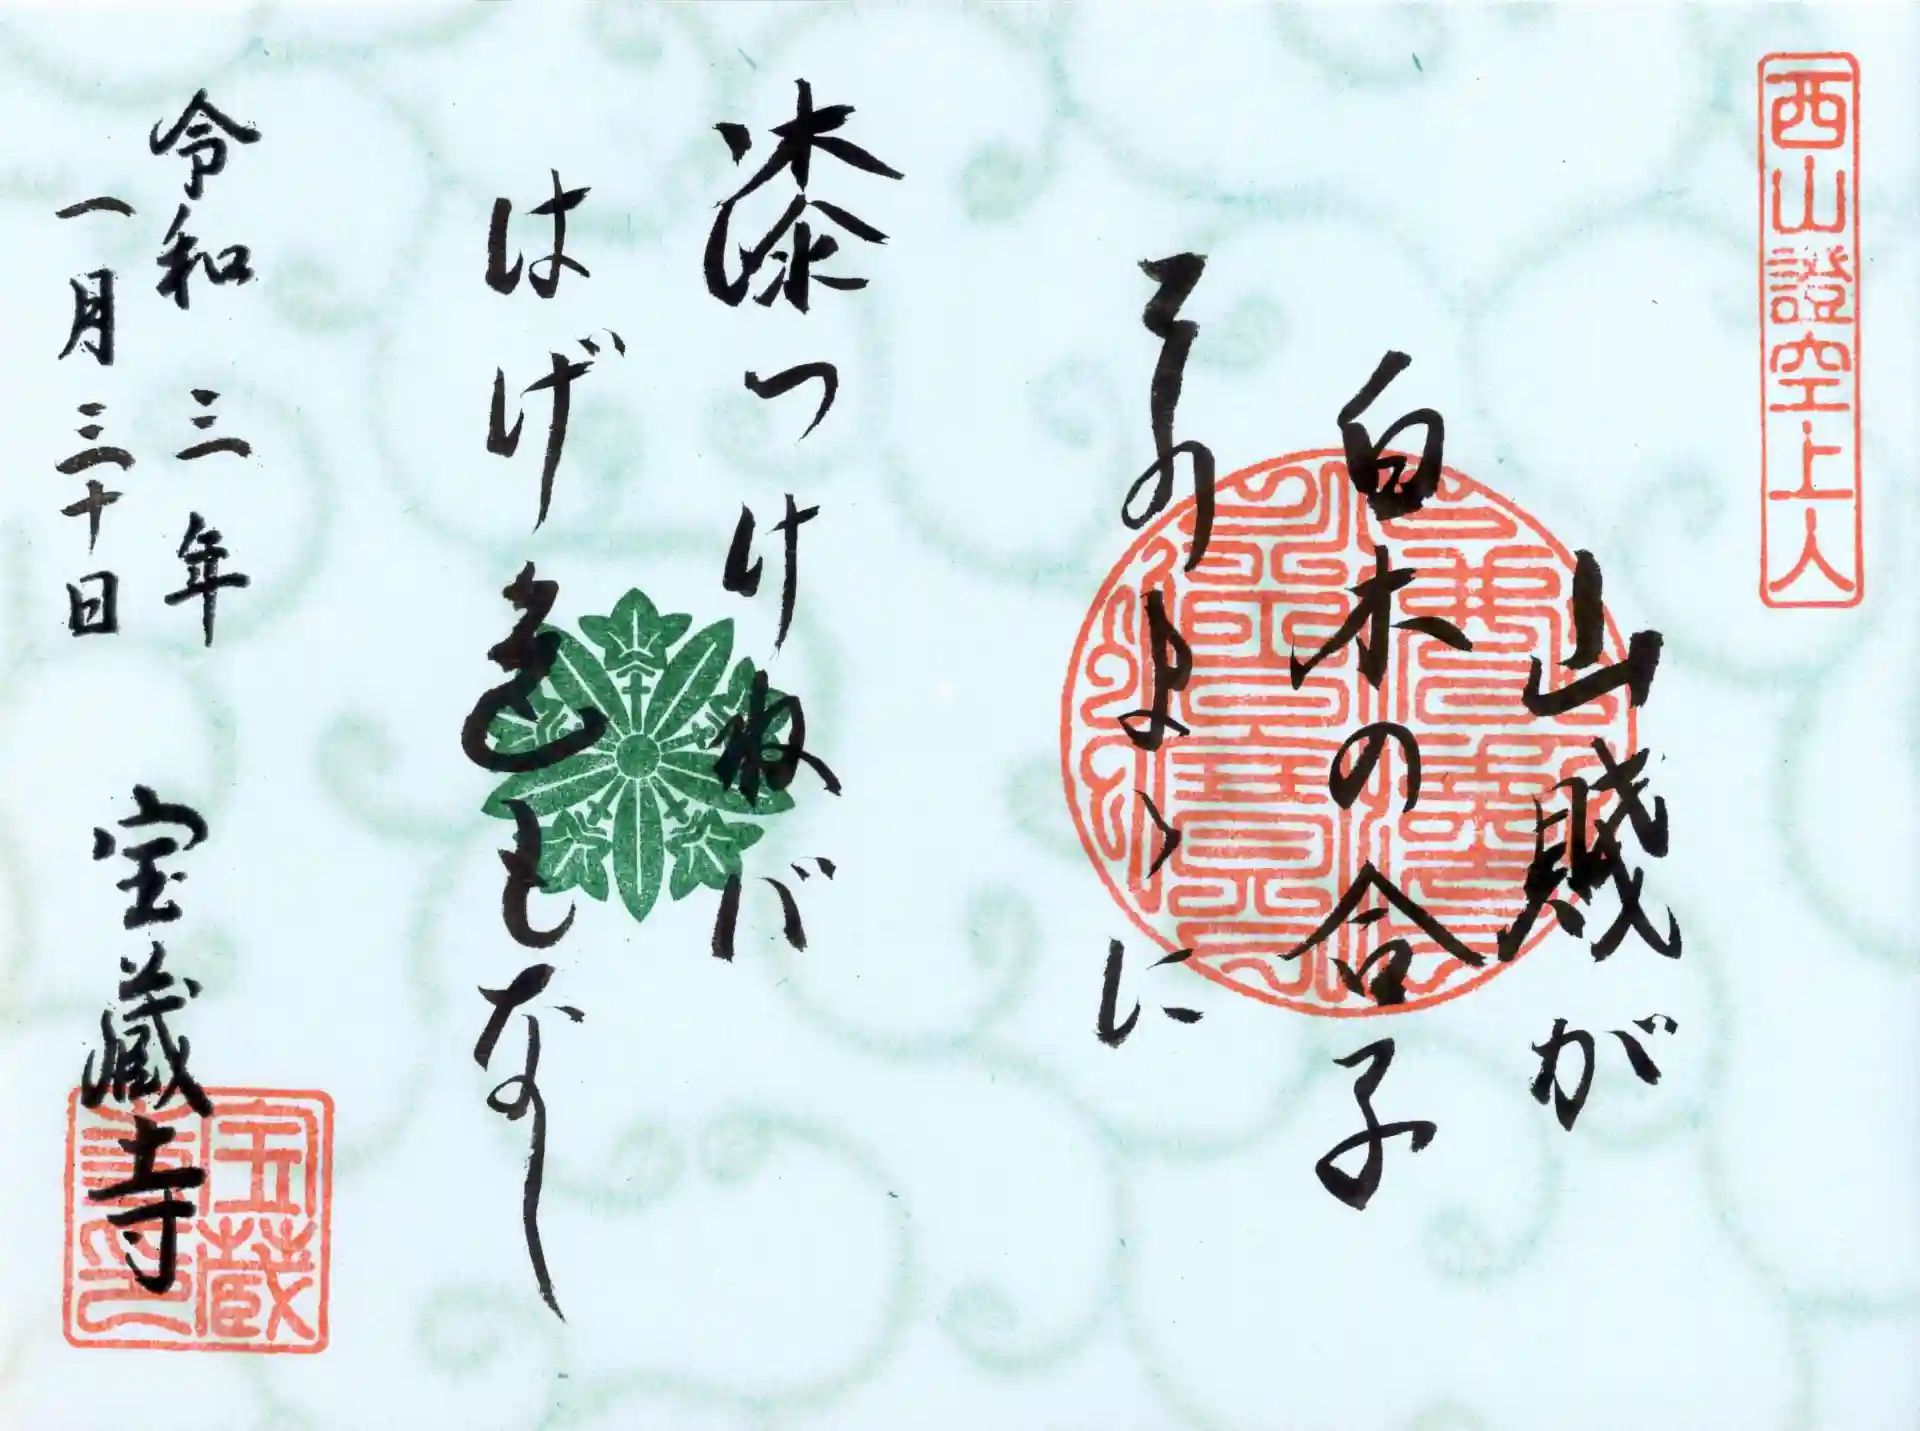 西山證空上人
山賤が
白木の合子
そのまゝに
漆つけねば
はげ色もなし
令和三年
一月三十日
宝蔵寺
宝蔵寺印